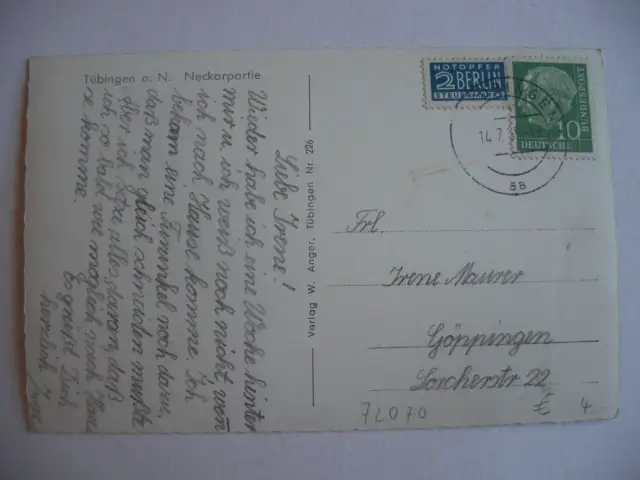 Tübingen a. N. Neckarpartie
Liebe Irene!
Wieder habe ich eine Woche hinter
mir u. ich weiß noch nicht wann
ich nach Hause komme. Ich
bekam eine Furunkel noch dazu,
daß man gleich schneiden mußte
aber ich setze alles daran, daß
ich so bald wie möglich nach Hau
se komme.
Es grüßt Dich
herzlich
Verlag W. Anger, Tübingen Nr. 226
NOTOPFER
2 BERLIN
STEUERMARKE
10
DEUTSCHE
BUNDESPOST
14.7.
aa
Frl.
Irene Maurer
Göppingen
Lorcherstr 22
7L070
£ 4